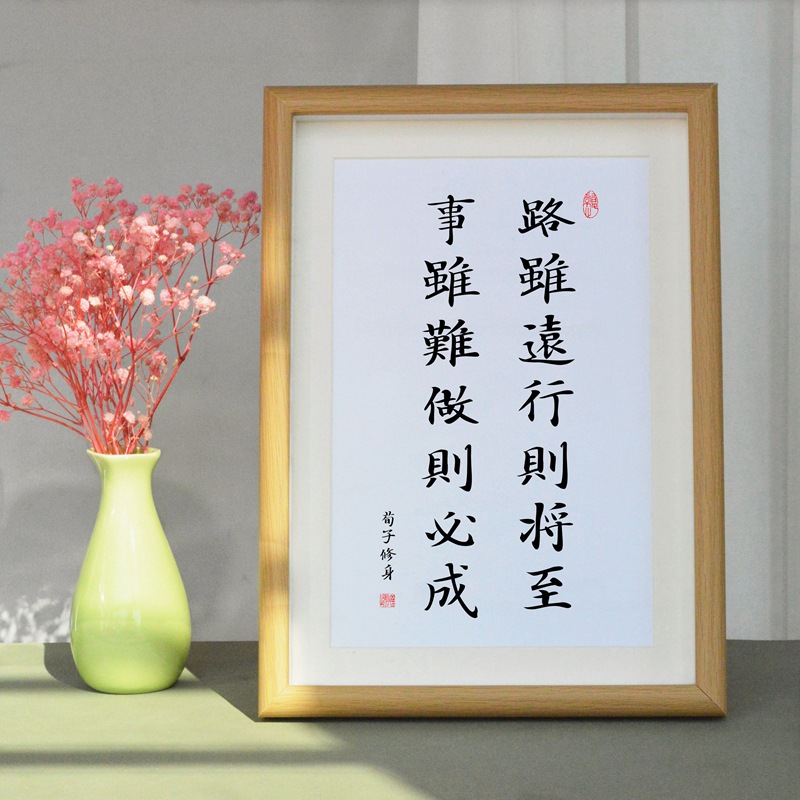 路雖遠行則将至
事雖難做則必成
荀子修身